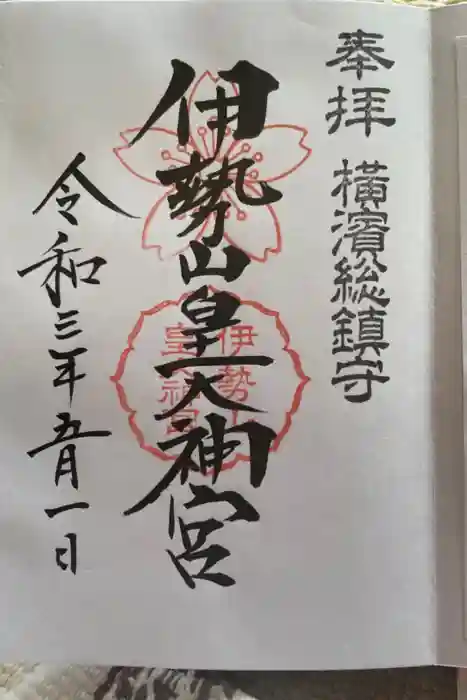 奉拝 橫濱総鎮守
伊勢山皇大神宮
伊勢山
皇大神宮
令和三年五月一日